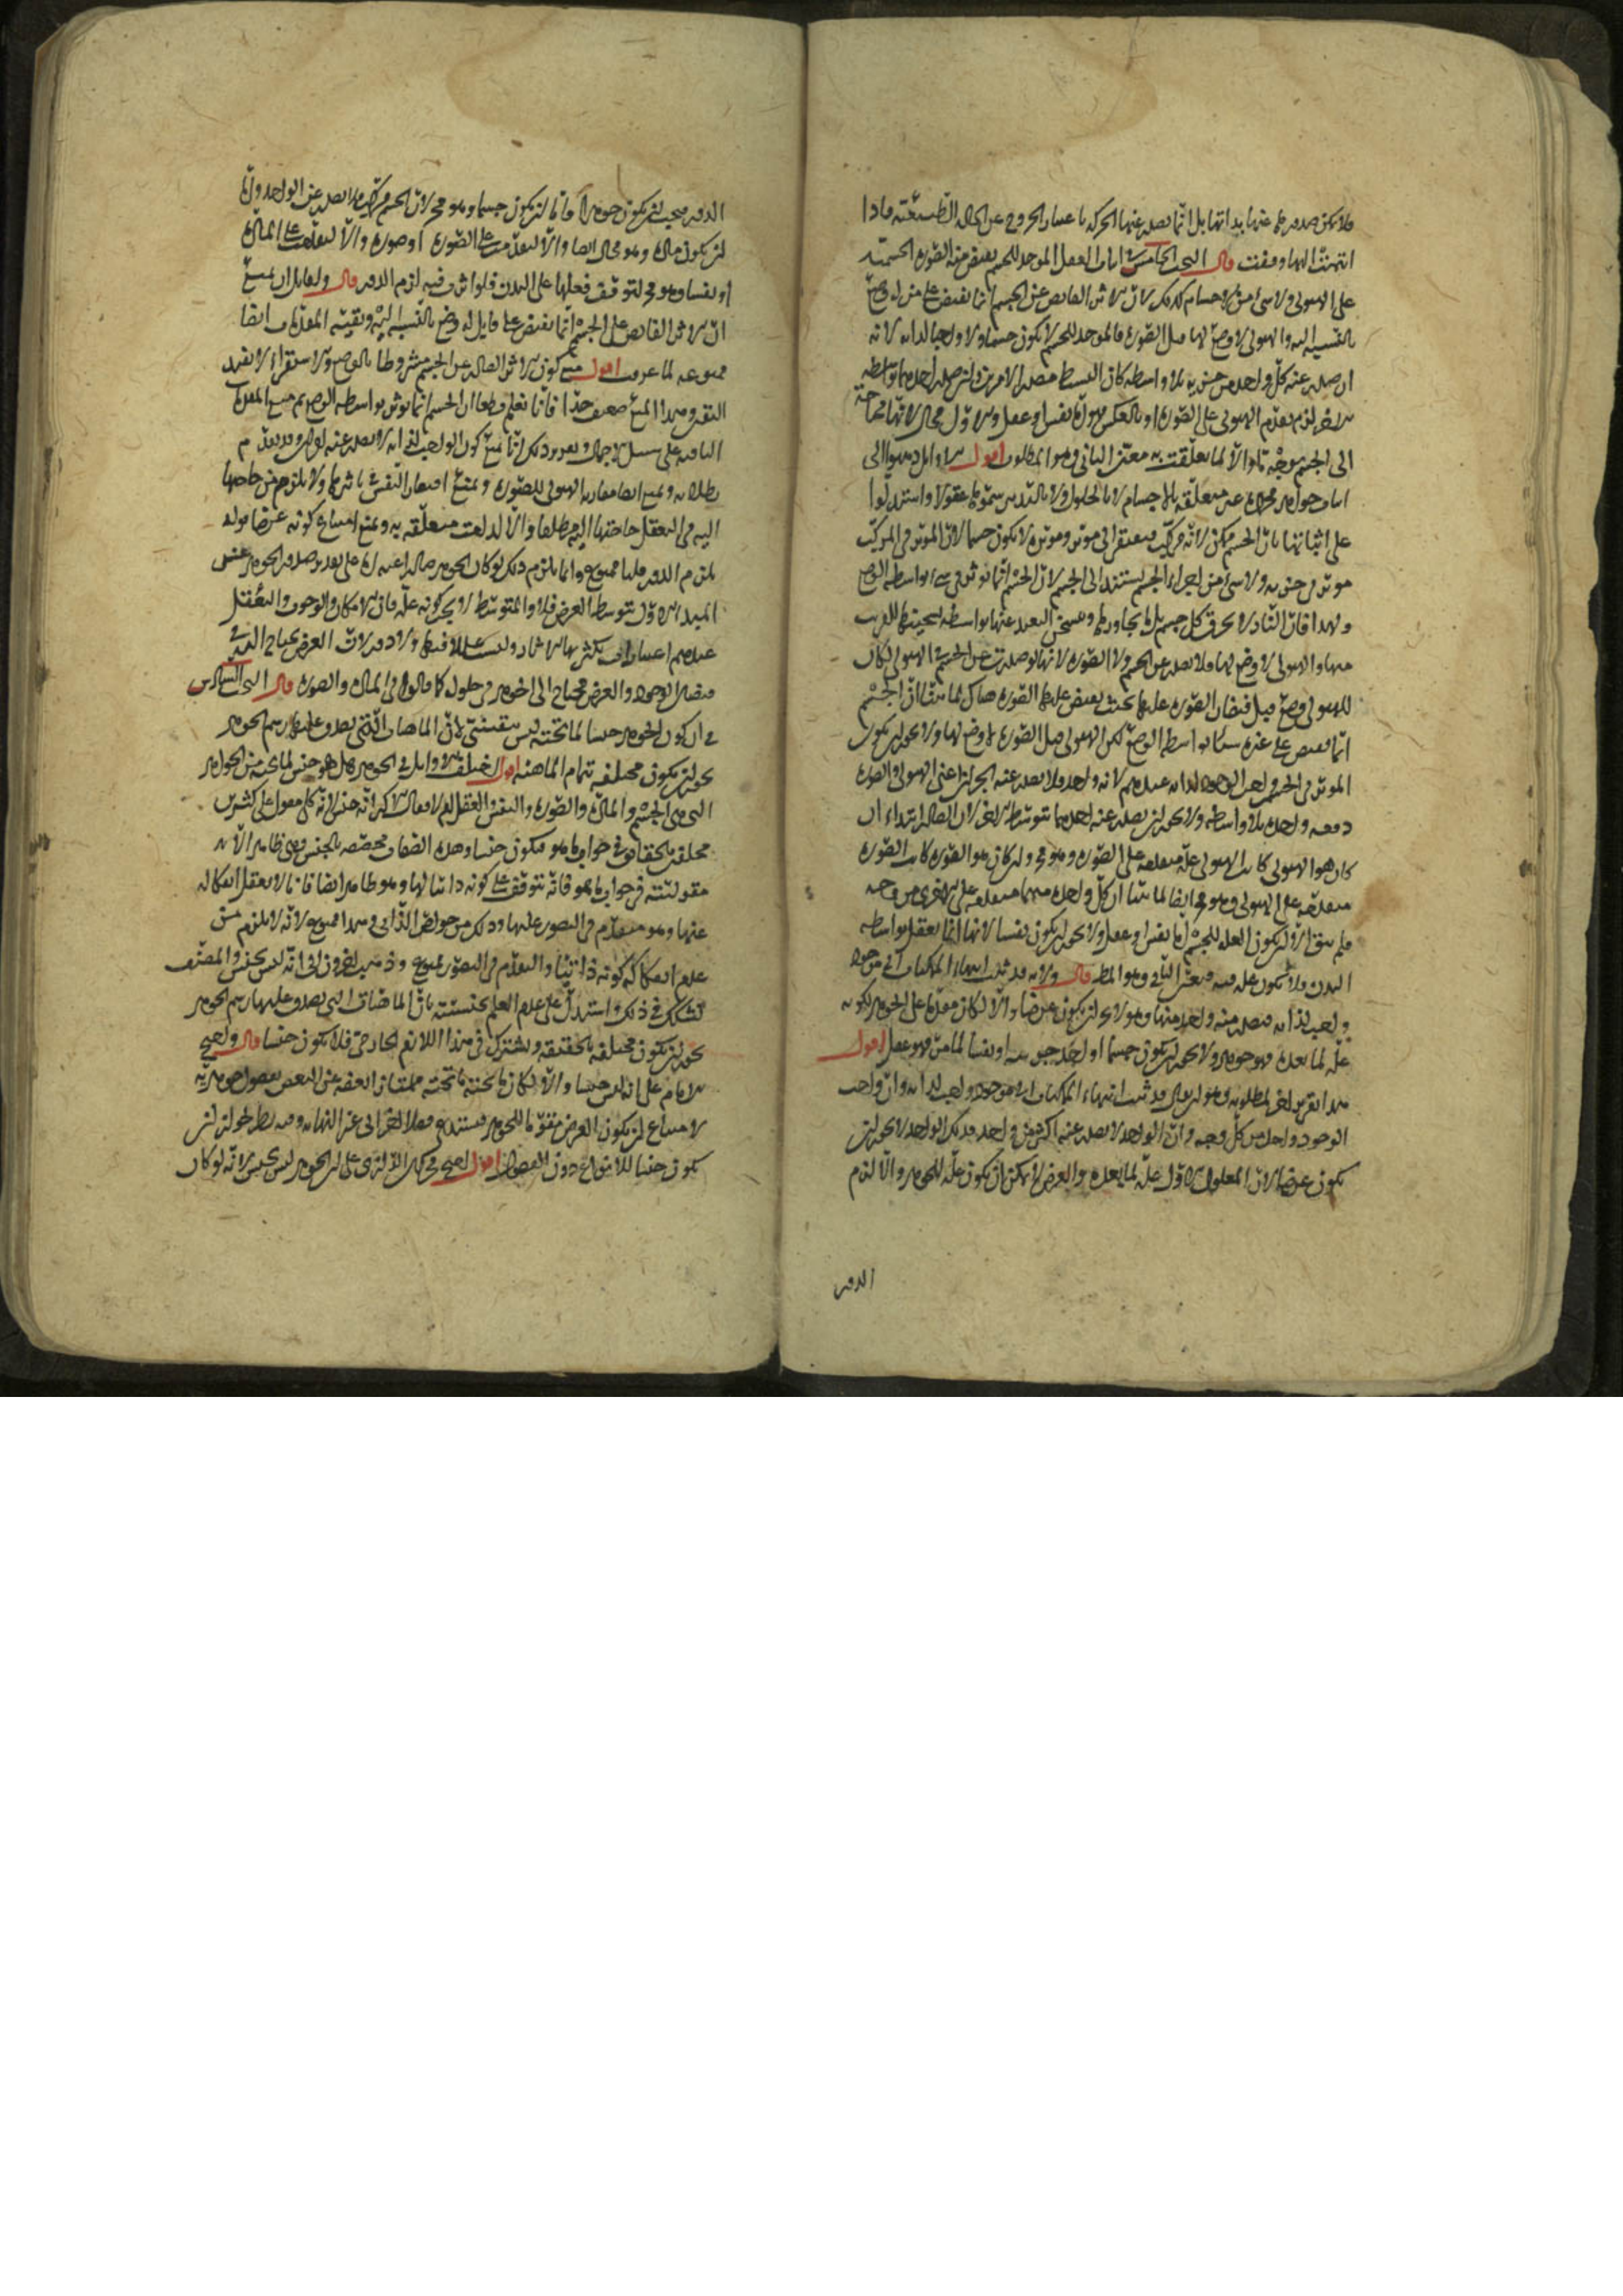 فلا يمكن صدورها عنها بذاتها بل انما يصدر عنها الحركة باعتبار الخروج عن الحالة الطبيعية فاذا
انتهت اليها وقفت قال البحث الخامس في اثبات العقل الموجد للجسم يفيض منه الصورة الجسمية
على الهيولى ولا شئ من الاجسام كذلك لان الاثر الفايض عن الجسم انما يفيض على من له وضع
بالنسبة اليه والهيولى لا وضع لها قبل الصورة فالموجد للجسم لا يكون جسما ولا واجبا لذاته لانه
ان صدر عنه كل واحد من جزئيه بلا واسطة كان البسيط مصدر الامرين وان صدر احدهما بواسطة
الاخر لزم تقدم الهيولى على الصورة او بالعكس نفسا او عقل والاول محال لانها محتاجة
الى الجسم بوجه ما والا لما تعلقت به فتعين الثاني وهو المطلوب اقول الاوايل ذهبوا الى
اثبات جواهر مجردة غير متعلقة بالاجسام لا بالحلول ولا بالتدبير سموها عقولا واستدلوا
على اثباتها بان الجسم ممكن لانه مركب فيفتقر الى موثر وموثره لا يكون جسما لان الموثر في المركب
موثر في جزئيه ولا شئ من اجزاء الجسم يستند الى الجسم لان الجسم انما يوثر في شئ بواسطة الوضع
ولهذا فان النار لا تحرق كل جسم بل ما يجاورها وتسخن البعيد عنها بواسطة تسخينها للقريب
منها والهيولى لا وضع لها فلا يصدر عن الجسم ولا الصورة لانها لو صدرت عن الجسم الهيولى لكان
للهيولى وضع قبل فيضان الصورة عليها بحيث يفيض عليها الصورة هناك لما بينا ان الجسم
انما يفيض على غيره بواسطة الوضع لكن الهيولى قبل الصورة لا وضع لها ولا يجوز ان يكون
الموثر في الجسم واجب الوجود لذاته عندهم لانه واحد فلا يصدر عنه الجزآن اعني الهيولى والصورة
دفعة واحدة بلا واسطة ولا يجوز ان يصدر عنه احدهما بتوسط الاخر لان الصادر ابتداء ان
كان هو الهيولى كانت الهيولى علة متقدمة على الصورة وهو مح وان كان هو الصورة كانت الصورة
متقدمة على الهيولى وهو مح ايضا لما بينا ان كل واحدة منهما متقدمة على الاخرى من وجه
فلم يبق الا ان يكون العلة للجسم اما نفس او عقل ولا يجوز ان يكون نفسا لانها انما تفعل بواسطة
البدن فلا تكون علة فيه فتعين الثاني وهو المط قال ولانه قد ثبت انتهاء الممكنات الى موجود
واجب لذاته فيصدر منه واحد منها وهو لا يجوز ان يكون عرضا والا لكان متقدما على الجوهر لكونه
علة لما بعده فهو جوهر ولا يجوز ان يكون جسما او احد جزئيه او نفسا لما مر فهو عقل اقول
هذا تقرير اخر لمطلوبه وهو ان يقال قد ثبت انتهاء الممكنات الى موجود واجب لذاته وان واجب
الوجود واحد من كل وجه وان الواحد لا يصدر عنه اكثر من واحد فذلك الواحد لا يجوز ان
يكون عرضا لان المعلول الاول علة لما بعده والعرض لا يمكن ان يكون علة للجوهر والا لزم
الدور
الدور فيجب ان يكون جوهرا فاما ان يكون جسما وهو مح لان الجسم مركب فلا يصدر عن الواحد واما
ان يكون مادة وهو محال ايضا والا لتقدمت على الصورة او صورة والا لتقدمت على المادة
او نفسا وهو مح لتوقف فعلها على البدن فلو اثرت فيه لزم الدور قال ولقايل ان يمنع
ان الاثر الفايض على الجسم انما يفيض على قابل له وضع بالنسبة اليه وبقية المقدمات ايضا
ممنوعة لما عرفت اقول منع كون الاثر الصادر عن الجسم مشروطا بالوضع والاستقراء لا يفيد
اليقين وهذا المنع ضعيف جدا فانا نعلم قطعا ان الجسم انما يوثر بواسطة الوضع ثم منع المقدمات
الباقية على سبيل الاجمال وتقرير ذلك انا نمنع كون الواجب لذاته لا يصدر عنه امران وقد تقدم
بطلانه ونمنع ايضا مقارنة الهيولى للصورة ونمنع افتقار النفس في تاثيرها ولا يلزم من حاجتها
اليه في التعقل حاجتها اليه مطلقا والا لدامت متعلقة به ونمنع امتناع كونه عرضا قوله
يلزم الدور قلنا ممنوع وانما يلزم ذلك لو كان الجوهر صادرا عنه اما على تقدير صدور الجوهر عن
المبدا الاول بتوسط العرض فلا والمتوسط لا يجب كونه علة فان الامكان والوجوب والتعقل
عندهم اعتبارات يكثر بها الاثار وليست عللا فيها ولا دور لان العرض يحتاج اليه في
فيضان الوجود والعرض محتاج الى اخر في حلوله كما قالوا في المادة والصورة قال البحث السادس
في ان كون الجوهر جنسا لما تحته ليس بيقيني لان الماهيات التي يصدق عليها رسم الجوهر
يجوز ان يكون مختلفة بتمام الماهية اقول اختلف الاوايل في الجوهر هل هو جنس لما تحته من الجواهر
التي هي الجسم والمادة والصورة والنفس والعقل ام لا فقال الاكثر انه جنس لانه كلي مقول على كثيرين
مختلفين بالحقايق في جواب ما هو فيكون جنسا وهذه الصفات مختصة بالجنس وهي ظاهرة الا
مقوليته في جواب ما هو فانه يتوقف على كونه ذاتيا لها وهو ظاهر ايضا فانا لا نعقل انفكاكه
عنها وهو متقدم في التصور عليها وذلك من خواص الذاتي وهذا ممنوع لانه لا يلزم من
عدم انفكاكه كونه ذاتيا والتقدم في التصور ممنوع وذهب اخرون الى انه ليس بجنس والمصنف
تشكك في ذلك واستدل على عدم العلم بجنسيته بان الماهيات التي يصدق عليها رسم الجوهر
يجوز ان يكون مختلفة بالحقيقة ويشترك في هذا اللازم الخارجي فلا يكون جنسا قال واحتج
الامام على انه ليس جنسا والا لكان ما تحته ممتازا بعضه عن البعض بفصول جوهرية
لامتناع ان يكون العرض مقوما للجوهر فيستدعي فصلا اخر الى غير النهاية وفيه نظر لجواز ان
يكون جنسا للانواع دون الفصول اقول احتج فخر الدين الرازي على ان الجوهر ليس بجنس لانه لو كان